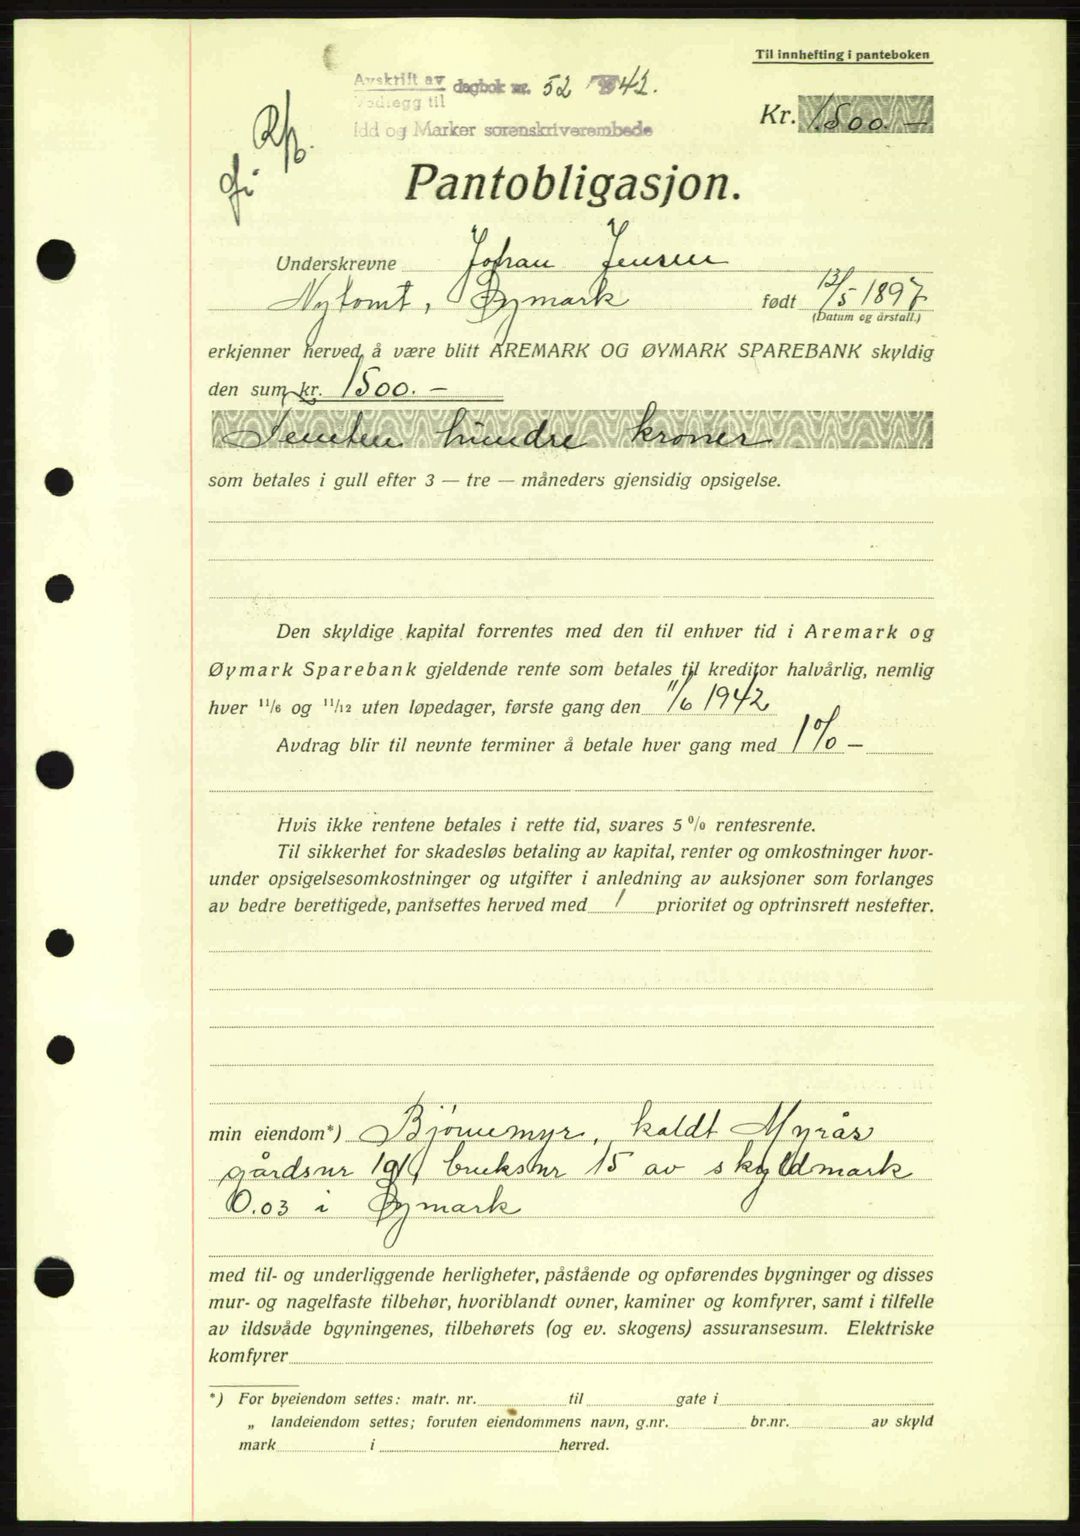 Til innhefting i panteboken
Avskrift av dagbok nr. 52 1942.
Vedlegg til
Idd og Marker sorenskriverembede
Kr. 1500.—
Pantobligasjon.
Underskrevne Johan Jensen
Nytomt, Øymark født 13/5 1897
(Datum og årstall.)
erkjenner herved å være blitt AREMARK OG ØYMARK SPAREBANK skyldig
den sum kr. 1500.—
Femten hundre kroner
som betales i gull efter 3 — tre — måneders gjensidig opsigelse.
Den skyldige kapital forrentes med den til enhver tid i Aremark og
Øymark Sparebank gjeldende rente som betales til kreditor halvårlig, nemlig
hver 11/6 og 11/12 uten løpedager, første gang den 11/6 1942
Avdrag blir til nevnte terminer å betale hver gang med 1% —
Hvis ikke rentene betales i rette tid, svares 5 % rentesrente.
Til sikkerhet for skadesløs betaling av kapital, renter og omkostninger hvor-
under opsigelsesomkostninger og utgifter i anledning av auksjoner som forlanges
av bedre berettigede, pantsettes herved med 1 prioritet og optrinsrett nestefter.
min eiendom*) Bjørnemyr, kaldt Myrås
gårdsnr 191, bruksnr 15 av skyldmark
0.03 i Øymark
med til- og underliggende herligheter, påstående og opførendes bygninger og disses
mur- og nagelfaste tilbehør, hvoriblandt ovner, kaminer og komfyrer, samt i tilfelle
av ildsvåde bgyningenes, tilbehørets (og ev. skogens) assuransesum. Elektriske
komfyrer
*) For byeiendom settes: matr. nr. til gate i
„ landeiendom settes; foruten eiendommens navn, g.nr. br.nr. av skyld
mark i herred.